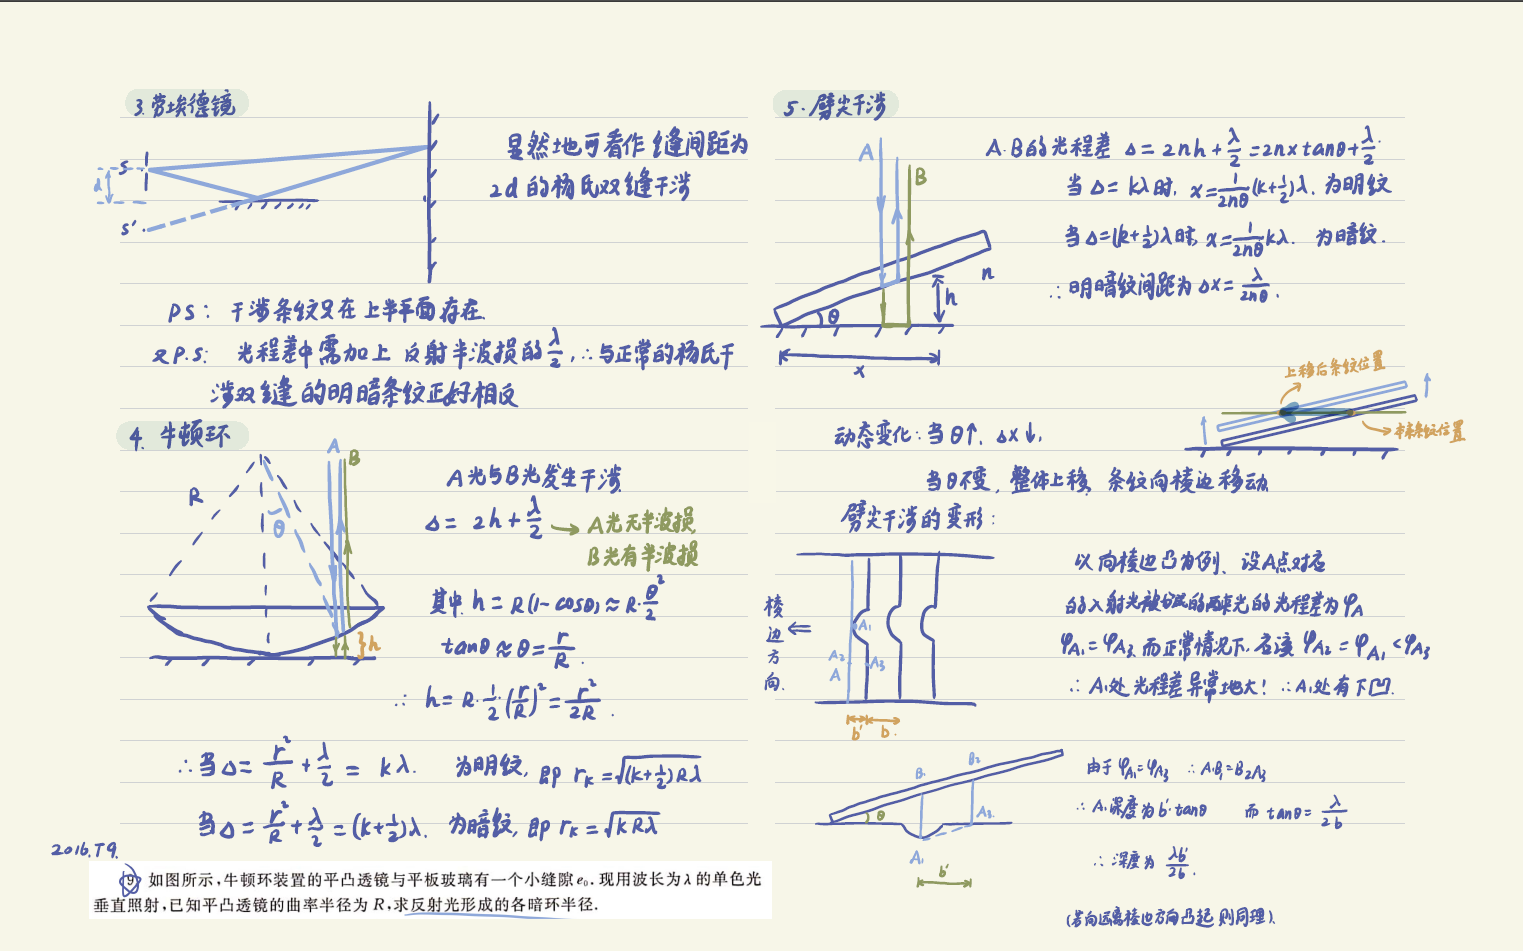 3.劳埃德镜
显然地可看作缝间距为
2d 的杨氏双缝干涉
S
d
S'
PS： 干涉条纹只在上半平面存在.
又P.S: 光程差中需加上反射半波损的 λ/2, ∴与正常的杨氏干
涉双缝的明暗条纹正好相反
4. 牛顿环
A
B
R
θ
h
A光与B光发生干涉
Δ= 2h+λ/2 → A光无半波损
B光有半波损
其中 h = R(1-cosθ) ≈ R·θ²/2
tanθ ≈ θ = r/R .
∴ h = R·1/2 (r/R)² = r²/2R .
∴当Δ= r²/R + λ/2 = kλ. 为明纹, 即 rK = √(k+1/2)Rλ
当Δ= r²/R + λ/2 = (k+1/2)λ. 为暗纹, 即 rK = √kRλ
2016.T9.
9 如图所示,牛顿环装置的平凸透镜与平板玻璃有一个小缝隙 e₀. 现用波长为 λ 的单色光
垂直照射,已知平凸透镜的曲率半径为 R,求反射光形成的各暗环半径.
5. 劈尖干涉
A
B
n
h
θ
x
A·B的光程差 Δ = 2nh+λ/2 =2nxtanθ+λ/2.
当Δ= kλ时, x=1/2nθ (k+1/2)λ. 为明纹
当Δ=(k+1/2)λ时, x=1/2nθ kλ. 为暗纹.
∴明暗纹间距为 Δx= λ/2nθ.
上移后条纹位置
本来条纹位置
动态变化: 当θ↑, Δx↓,
当θ不变, 整体上移, 条纹向棱边移动
劈尖干涉的变形:
棱边方向.
A₁
A₂
A₃
A
b'
b
以向棱边凸为例、设A点对应
的入射光的光程差为φA
φA₁ = φA₃ 而正常情况下, 应该 φA₂ = φA₁ < φA₃
∴ A₁处光程差异常地大! ∴A₁处有下凹.
B₁
B₂
θ
A₁
A₃
b'
由于 φA₁=φA₃ ∴A₁B₁=B₂A₃
∴ A₁深度为b'·tanθ 而 tanθ= λ/2b
∴深度为 λb'/2b.
(若向远离棱边方向凸起则同理).